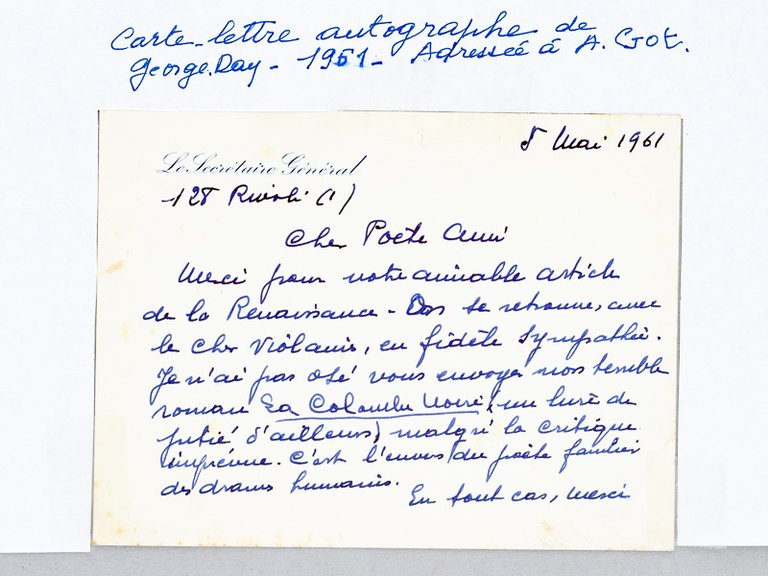 Carte-lettre autographe de
George.Day - 1961 - Adressée à A. Got.
5 Mai 1961
Le Secrétaire Général
128 Rivoli (1)
Cher Poète Ami
Merci pour votre aimable article
de la Renaissance - On se retrouve, avec
le cher Violanis, en fidèle sympathie.
Je n'ai pas osé vous envoyer mon terrible
roman La Colombe Noire (un livre de
pitié d'ailleurs) malgré la critique
imprévue. C'est l'envers du poète familier
des drames humains.
En tout cas, merci